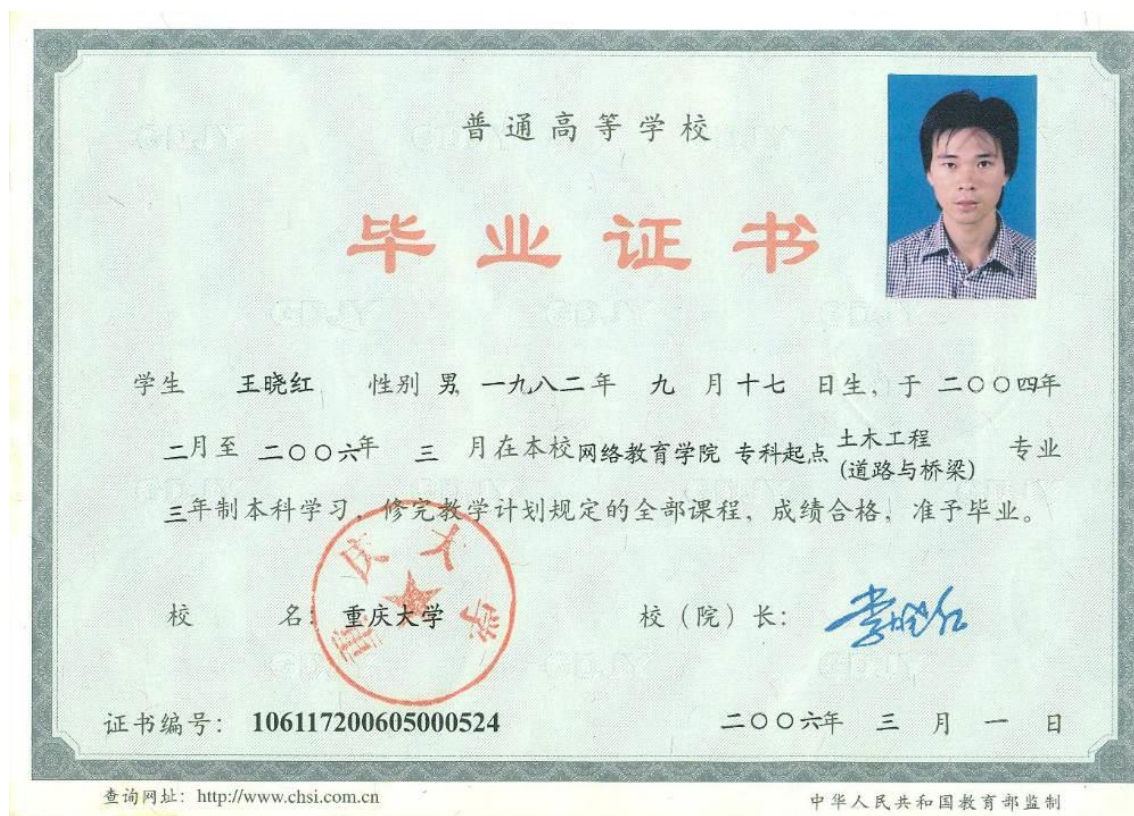 普通高等学校
毕业证书
学生 王晓红 性别 男 一九八二年 九 月十七 日生，于 二〇〇四年
二月至 二〇〇六年 三 月在本校网络教育学院 专科起点 土木工程(道路与桥梁) 专业
三年制本科学习，修完教学计划规定的全部课程，成绩合格，准予毕业。
校 名：重庆大学 校（院）长：李晓红
重庆大学
证书编号：106117200605000524 二〇〇六年 三 月 一 日
查询网址：http://www.chsi.com.cn 中华人民共和国教育部监制